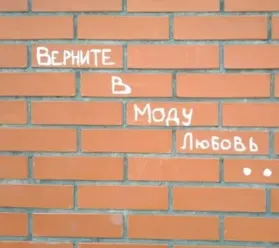 Верните
в
Моду
Любовь
..